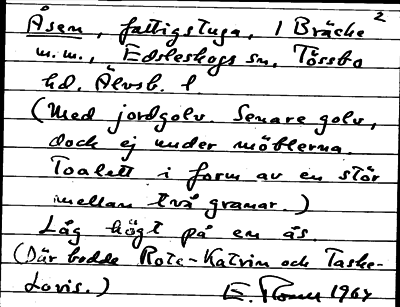 2
Åsen, fattigstuga, / Bräcke
m.m., Edsleskogs sn, Tössbo
hd. Älvsb. l.
(Med jordgolv. Senare golv,
dock ej under möblerna.
Toalett i form av en stör
mellan två granar.)
Låg högt på en ås.
(Där bodde Rote-Katrin och Taske-
Lovis.)
E. 1964